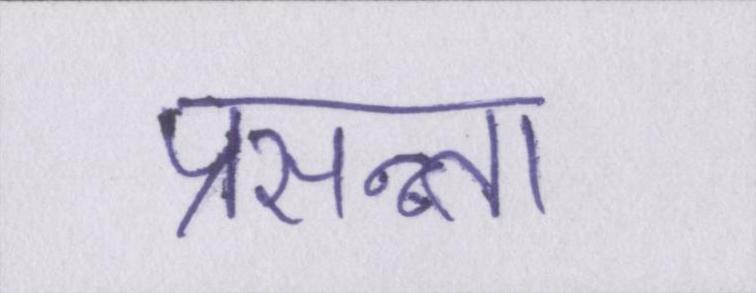 प्रसन्नता